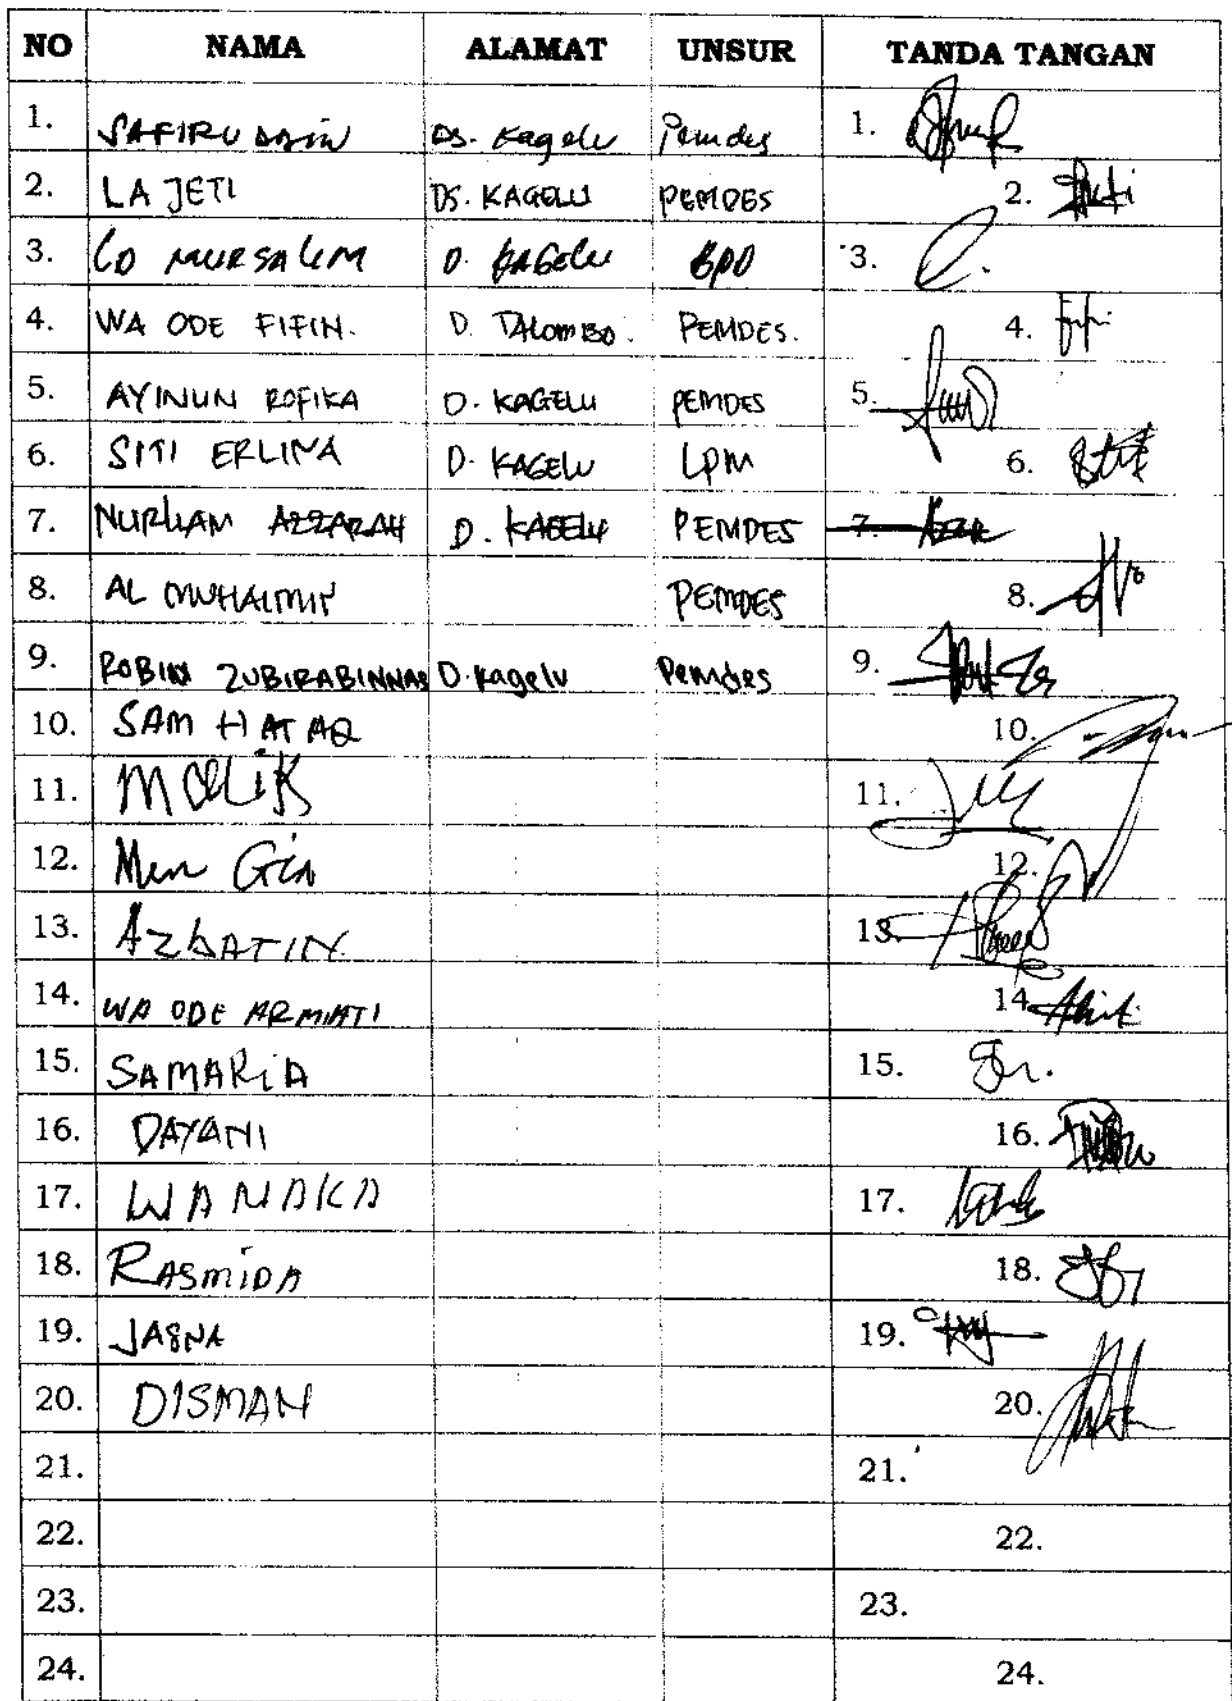 NO NAMA ALAMAT UNSUR TANDA TANGAN
1. SAFIRUDDIN Ds. Kagelu Pemdes 1.
2. LA JETI DS. KAGELU PEMDES 2.
3. LD MURSALIM D. KAGELU BPD 3.
4. WA ODE FIFIN. D. TALOMBO. PEMDES. 4.
5. AYINUN ROFIKA D. KAGELU PEMDES 5.
6. SITI ERLINA D. KAGELU LPM 6.
7. NURLIAM AZZARAH D. KAGELU PEMDES 7.
8. AL MUHAIMIN PEMDES 8.
9. ROBIN ZUBIRABINNAS D. Kagelu Pemdes 9.
10. SAM HATAQ 10.
11. MALIK 11.
12. 12.
13. 13.
14. WA ODE ARMIATI 14.
15. SAMARIA 15.
16. DAYANI 16.
17. WANAKA 17.
18. RASMIDA 18.
19. JASNA 19.
20. DISMAN 20.
21. 21.
22. 22.
23. 23.
24. 24.